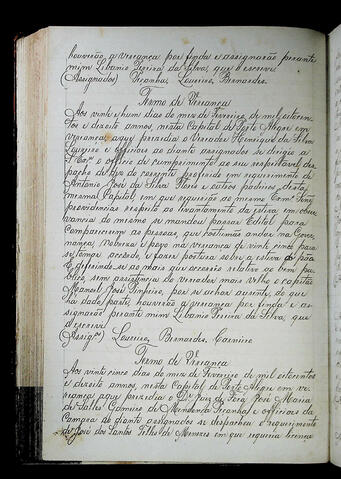 houverão a vereança por finda e assignarão perante
mim Libanio Pereira da Silva, que o escrevi
(Assignados) Peçanha, Loureiro, Bernardes.
Termo de Vereança
Aos vinte e hum dias do mez de Fevereiro de mil oitocen
tos e dezoito annos, nesta Capital de Porto Alegre em
vereança, aqui prezidio o Vereador Henrique da Silva
Loureiro e officiaes ao diante assignados se dirigio ao
o officio de cumprimento ao seu respeitavel des-
pacho de do corrente proferido em requerimento de
Antonio José da Silva Flores e outros padeiros desta
mesma Capital, em que requerião ao mesmo
providencias respeito ao levantamento da
vancia do mesmo se mandou passar Edital para
comparecerem as pessoas, que costumão andar na Gover
nança, Nobreza e povo na vereança de vinte cinco para
se tomar accordo, e fazer postura sobre a do pão
E deferindo-se ao mais que occorreo relativo ao bem pu-
blico, sem assistencia do vereador mais velho o capitão
Manoel José Pinheiro, por se achar auzente, do que
na dada parte, houverão a vereança por finda e as-
signarão perante mim Libanio Pereira da Silva, que
o escrevi
(Assig.os) Loureiro, Bernardes, Carneiro
Termo de Vereança
Aos vinte cinco dias do mez de Fevereiro de mil oitocentos
e dezoito annos, nesta Capital de Porto Alegre em ve
reança aqui prezidio o Dr. Juiz de Fóra José Maria
de Salles Gameiro de Mendonça Peçanha e officiaes da
Camara ao diante assignados se despachou o requerimento
de José dos Santos Filho de Menezes em que requeria licença